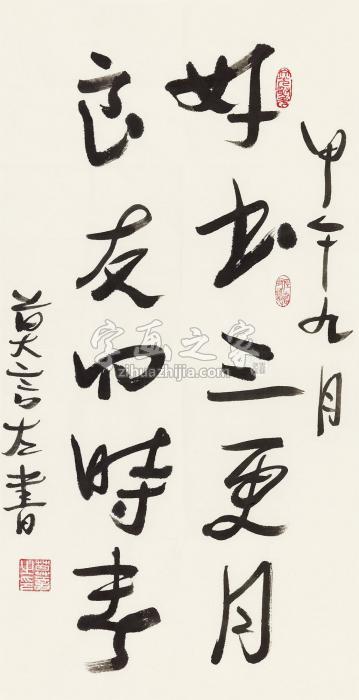 甲午九月
好书三更月
良友四時春
莫言左書
字画之家
zihuazhijia.com